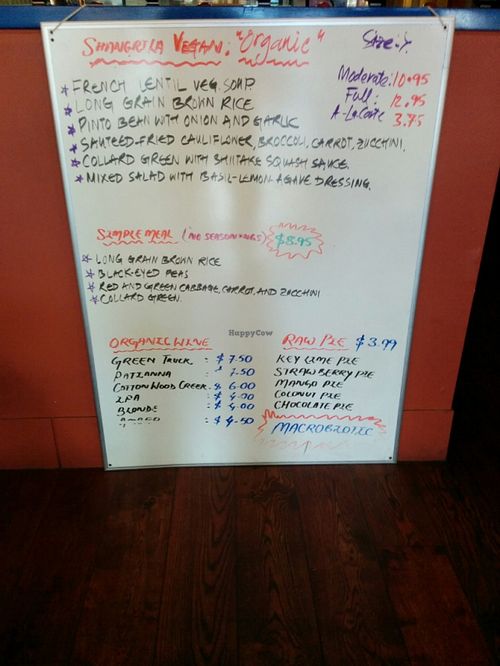 SHANGRILA VEGAN: "ORGANIC"
SIZE:
MODERATE: 10.95
FULL: 12.95
A-LACARTE 3.75
* FRENCH LENTIL VEG. SOUP
* LONG GRAIN BROWN RICE
* PINTO BEAN WITH ONION AND GARLIC
* SAUTEED-FRIED CAULIFLOWER, BROCCOLI, CARROT, ZUCCHINI.
* COLLARD GREEN WITH SHIITAKE SQUASH SAUCE.
* MIXED SALAD WITH BASIL-LEMON-AGAVE DRESSING.
SIMPLE MEAL (NO SEASONINGS) $8.95
* LONG GRAIN BROWN RICE
* BLACK-EYED PEAS
* RED AND GREEN CABBAGE, CARROT, AND ZUCCHINI
* COLLARD GREEN.
HappyCow
ORGANIC WINE
GREEN TRUCK : $7.50
PATIANNA : $7.50
COTTON WOOD CREEK : $6.00
IPA : $4.00
BLONDE : $4.00
: $4.50
RAW PIE $3.99
KEY LIME PIE
STRAWBERRY PIE
MANGO PIE
COCONUT PIE
CHOCOLATE PIE
MACROBIOTIC